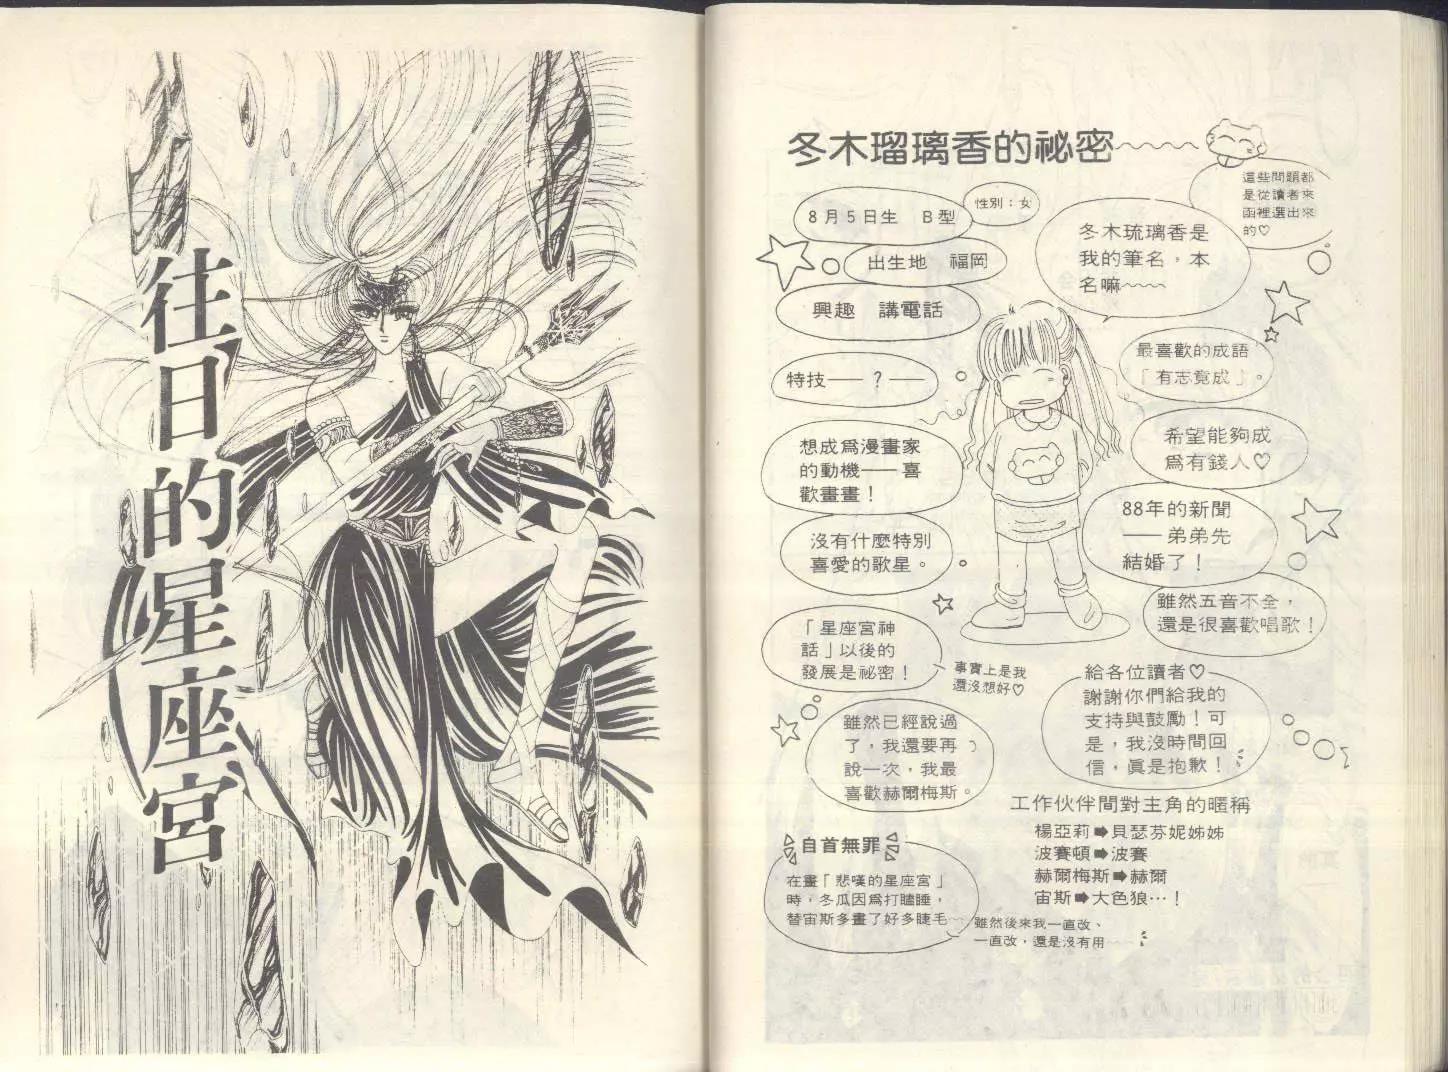 往日的星座宮
冬木瑠璃香的祕密
這些問題都
是從讀者來
函裡選出來
的♡
8月5日生　B型
性別：女
出生地　福岡
興趣　講電話
特技——？——
想成爲漫畫家
的動機——喜
歡畫畫！
沒有什麼特別
喜愛的歌星。
「星座宮神
話」以後的
發展是祕密！
事實上是我
還沒想好♡
雖然已經說過
了，我還要再
說一次，我最
喜歡赫爾梅斯。
自首無罪
在畫「悲嘆的星座宮」
時，冬瓜因爲打瞌睡，
替宙斯多畫了好多睫毛
雖然後來我一直改、
一直改，還是沒有用
冬木琉璃香是
我的筆名，本
名嘛～～～
最喜歡的成語
「有志竟成」。
希望能夠成
爲有錢人♡
88年的新聞
——弟弟先
結婚了！
雖然五音不全，
還是很喜歡唱歌！
給各位讀者♡
謝謝你們給我的
支持與鼓勵！可
是，我沒時間回
信，眞是抱歉！
工作伙伴間對主角的暱稱
楊亞莉➡貝瑟芬妮姊姊
波賽頓➡波賽
赫爾梅斯➡赫爾
宙斯➡大色狼…！